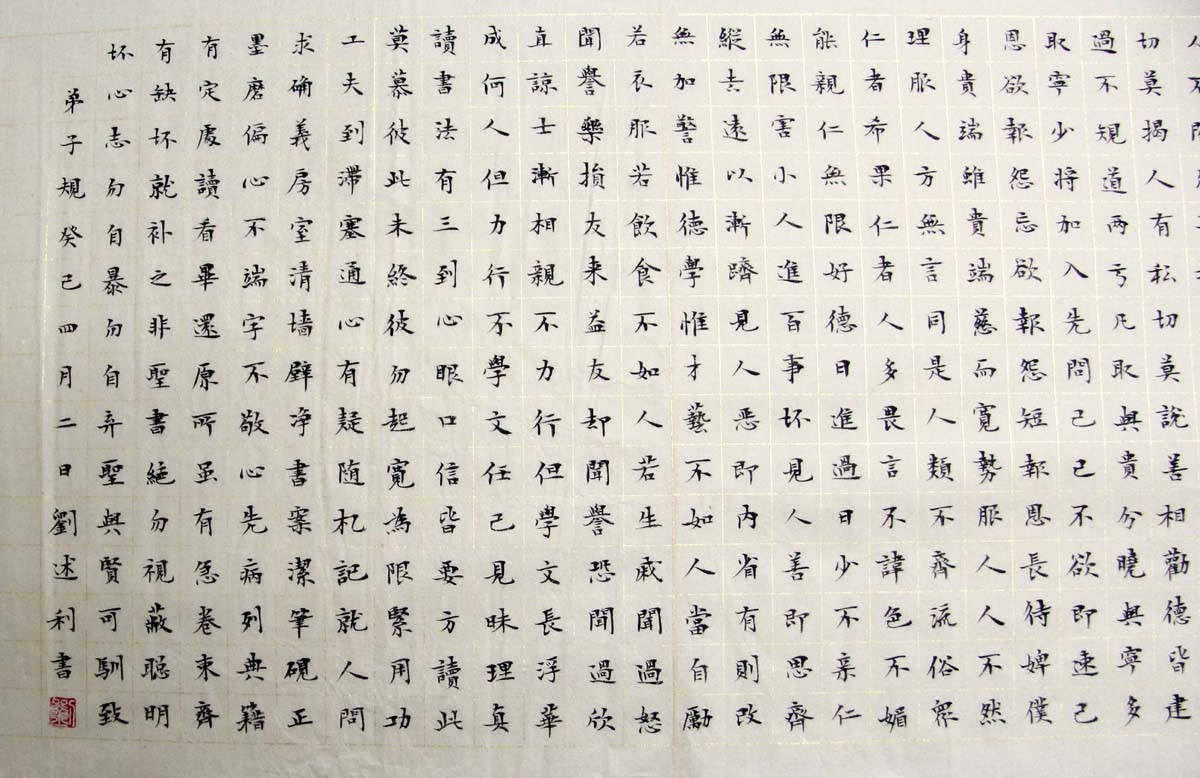 切莫揭人有私切莫說善相勸德皆建
過不規道兩亏凡取與貴分曉與寧多
取寧少將加入先問己己不欲即速己
恩欲報怨忘欲報怨短報恩長待婢僕
身貴端雖貴端慈而寬勢服人人不然
理服人方無言同是人類不齊流俗眾
仁者希果仁者人多畏言不諱色不媚
能親仁無限好德日進過日少不亲仁
無限害小人進百事坏見人善即思齊
縱去遠以漸躋見人惡即內省有則改
無加警惟德學惟才藝不如人當自勵
若衣服若飲食不如人若生戚聞過怒
聞譽樂損友来益友却聞譽恐聞過欣
直諒士漸相親不力行但學文長浮華
成何人但力行不學文任己見昧理真
讀書法有三到心眼口信皆要方讀此
莫慕彼此未終彼勿起寬為限緊用功
工夫到滞塞通心有疑随札記就人問
求确義房室清墙壁净書案潔筆硯正
墨磨偏心不端字不敬心先病列典籍
有定處讀看畢還原所虽有急卷束齊
有缺坏就补之非聖書絕勿視蔽聪明
坏心志勿自暴勿自弃聖與賢可馴致
弟子規癸巳四月二日劉述利書